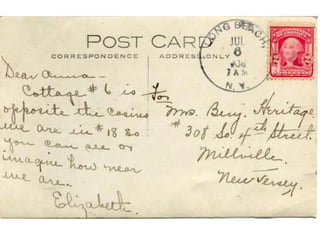 POST CARD
CORRESPONDENCE
ADDRESS ONLY
LONG BEACH,
JUL
6
7 AM
N.Y.
Dear Anna-
Cottage #6 is
opposite the casino
we are in #18 so
you can see or
imagine how near
we are.
Elizabeth.
For
Mrs. Benj. Heritage.
#308 So 4th Street.
Millville.
New Jersey.